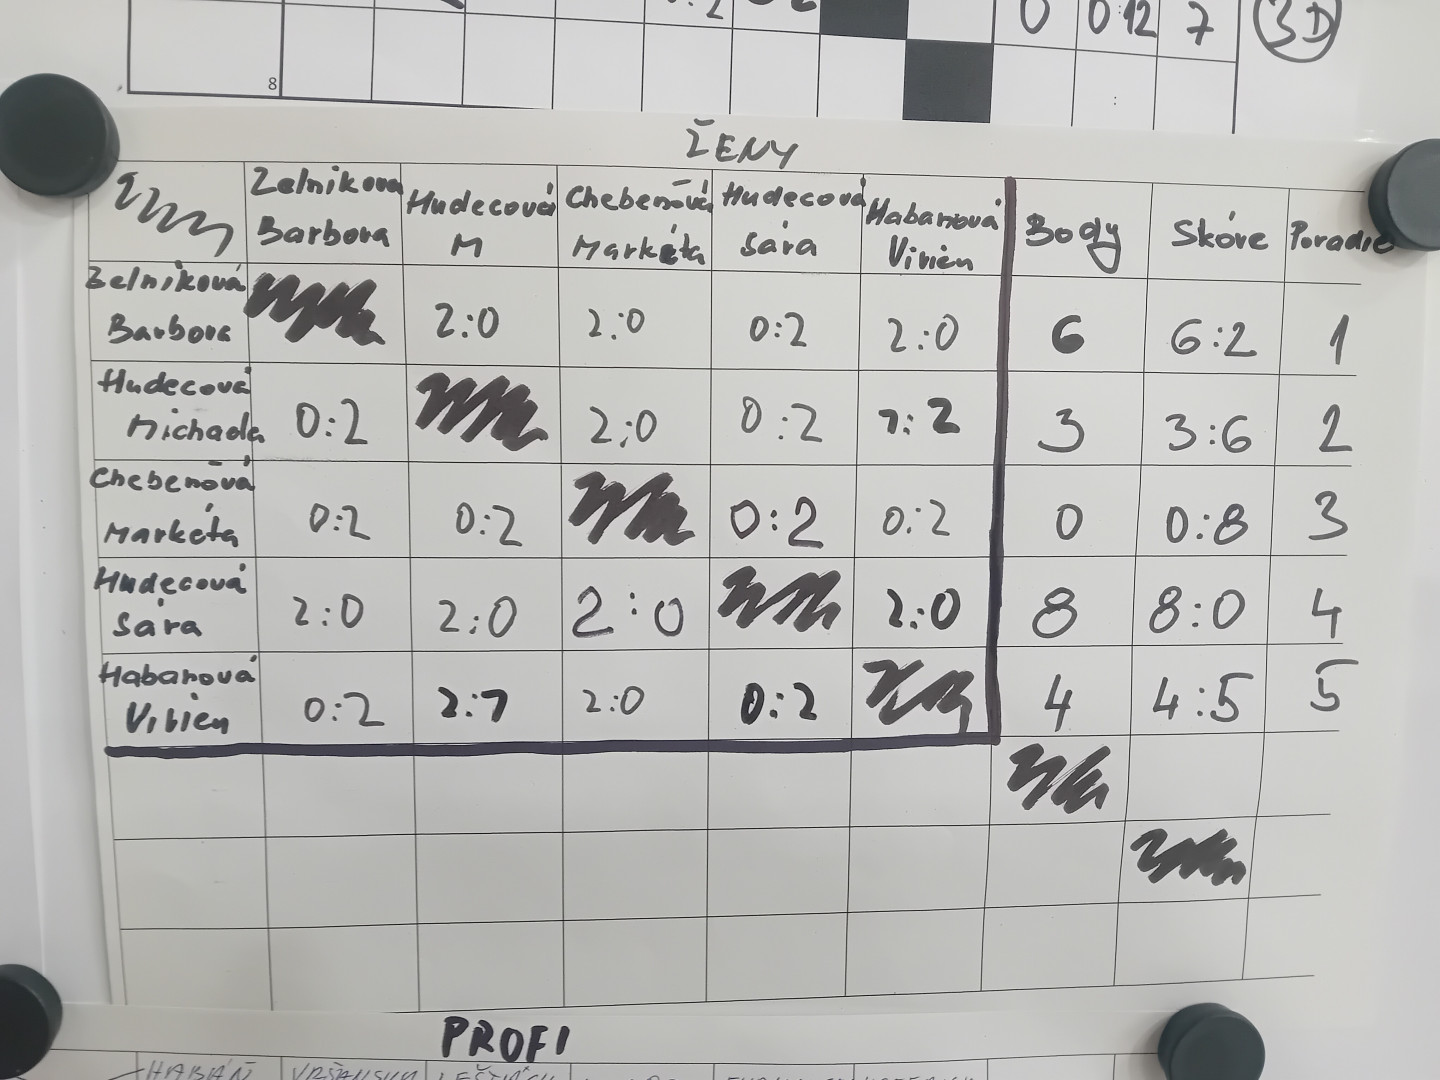 0 0:12 7 3D
8
ŽENY
Zelnikova Barbora Hudecová M Chebeňová Markéta Hudecová Sára Habanová Vivien Body Skóre Poradie
Zelniková Barbora 2:0 2:0 0:2 2:0 6 6:2 1
Hudecová Michaela 0:2 2:0 0:2 1:2 3 3:6 2
Chebeňová Markéta 0:2 0:2 0:2 0:2 0 0:8 3
Hudecová Sára 2:0 2:0 2:0 2:0 8 8:0 4
Habanová Vivien 0:2 2:1 2:0 0:2 4 4:5 5
PROFI